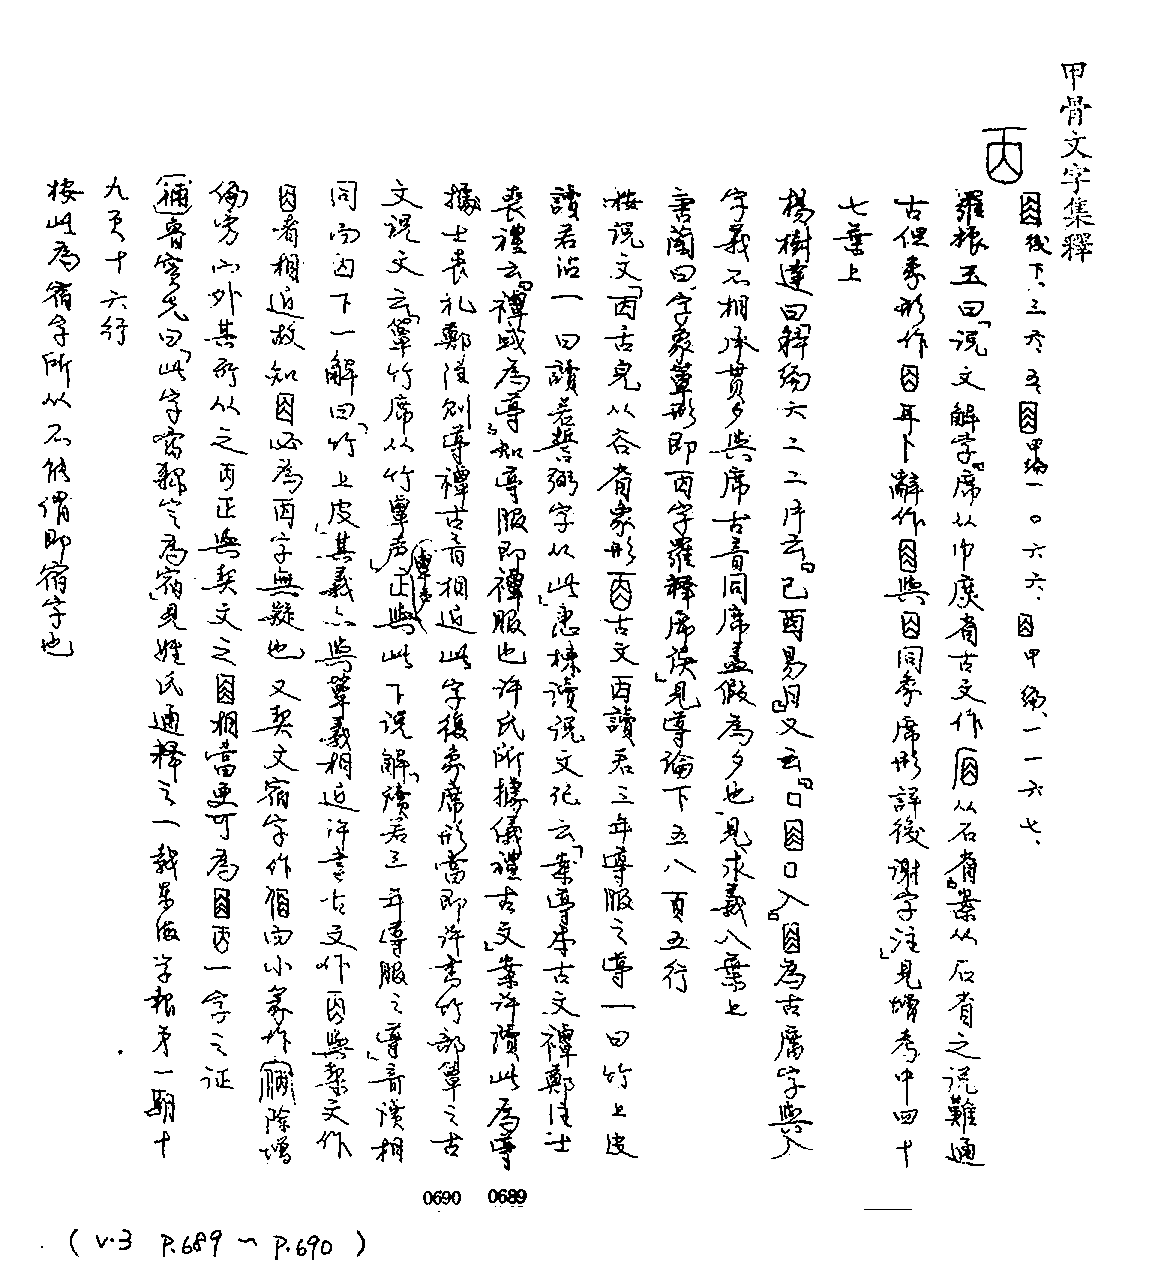 甲骨文字集釋
㐁
後下·三六·五 甲編一〇六六· 甲編·一一六七·
羅振玉曰「說文解字『席从巾庶省古文作 从石省』案从石省之說難通
古但象形作 耳卜辭作 與 同象席形詳後謝字注」見增考中四十
七葉上
楊樹達曰「綴六二二片云『己酉易日』又云『囗 囗入』 為古席字與入
字義不相承貫夕與席古音同席蓋假為夕也」見求義八葉上
唐蘭曰「字象簟形即㐁字羅釋席誤」見導論下五八頁五行
按說文「㐁舌皃从谷省象形 古文㐁讀若三年導服之導一曰竹上皮
讀若沾一曰讀若誓弼字从此」惠棟讀說文記云「案導本古文禫鄭注士
喪禮云『禫或為導』知導服即禫服也許氏所據儀禮古文」案許讀此為導
據士喪礼鄭注則導禫古音相近此字復象席形當即許書竹部簟之古
文說文云「簟竹席从竹覃聲」覃聲正與此下說解「讀若三年導服之導」音讀相
同而㐁下一解曰「竹上皮」其義亦與簟義相近許書古文作 與契文作
者相近故知 必為㐁字無疑也又契文宿字作 而小篆作 除增
偏旁宀外其所从之㐁正與契文之 相當更可為 㐁一字之証
魯實先曰「此字當釋 為宿」見姓氏通釋之一載東海學報第一期十
九頁十六行
按此為宿字所从不能謂即宿字也
0690 0689
(v.3 p.689~p.690)